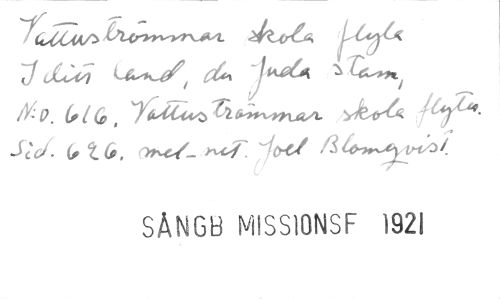 Vattuströmmar skola flyta
I ditt land, du Juda stam,
N:o. 616. Vattuströmmar skola flyta.
Sid. 626. mel-not. Joel Blomqvist.
SÅNGB MISSIONSF 1921